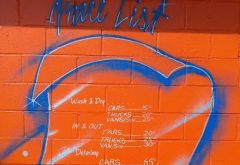 Price List
Wash & Dry
CARS 15-
TRUCKS 20-
VANS/SUV 25-
IN & OUT
CARS 20-
TRUCKS
VANS/SUV 30-
Detailing
CARS 65-